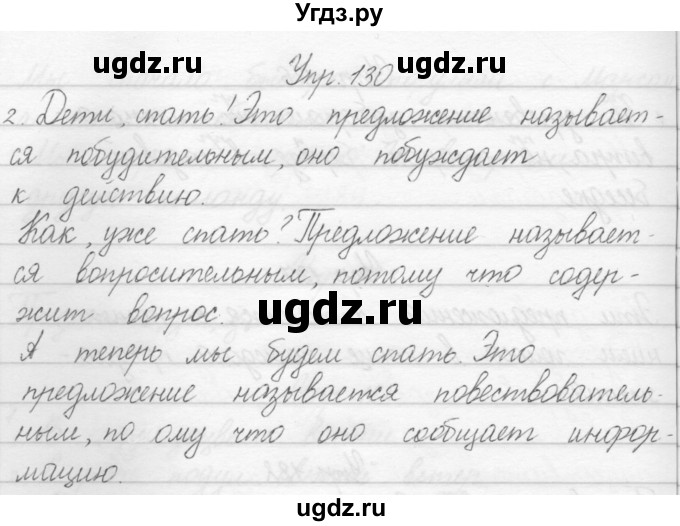 Угдз.ру
ugdz.ru ugdz.ru
Упр. 130
2. Дети, спать! Это предложение называет-
ся побудительным, оно побуждает
к действию.
ugdz.ru
Как, уже спать? Предложение называет-
ся вопросительным, потому что содер-
жит вопрос.
ugdz.ru
А теперь мы будем спать. Это
предложение называется повествователь-
ным, по ому что оно сообщает инфор-
мацию.
ugdz.ru ugdz.ru
ugdz.ru